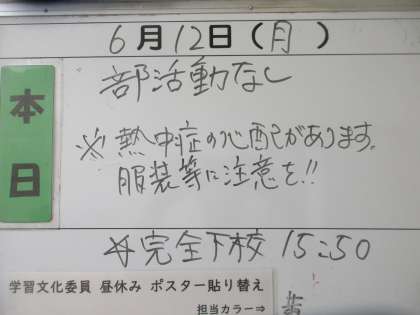 6月12日(月)
本日
部活動なし
※熱中症の心配があります。
服装等に注意を!!
☆完全下校 15:50
学習文化委員 昼休み ポスター貼り替え
担当カラー⇒